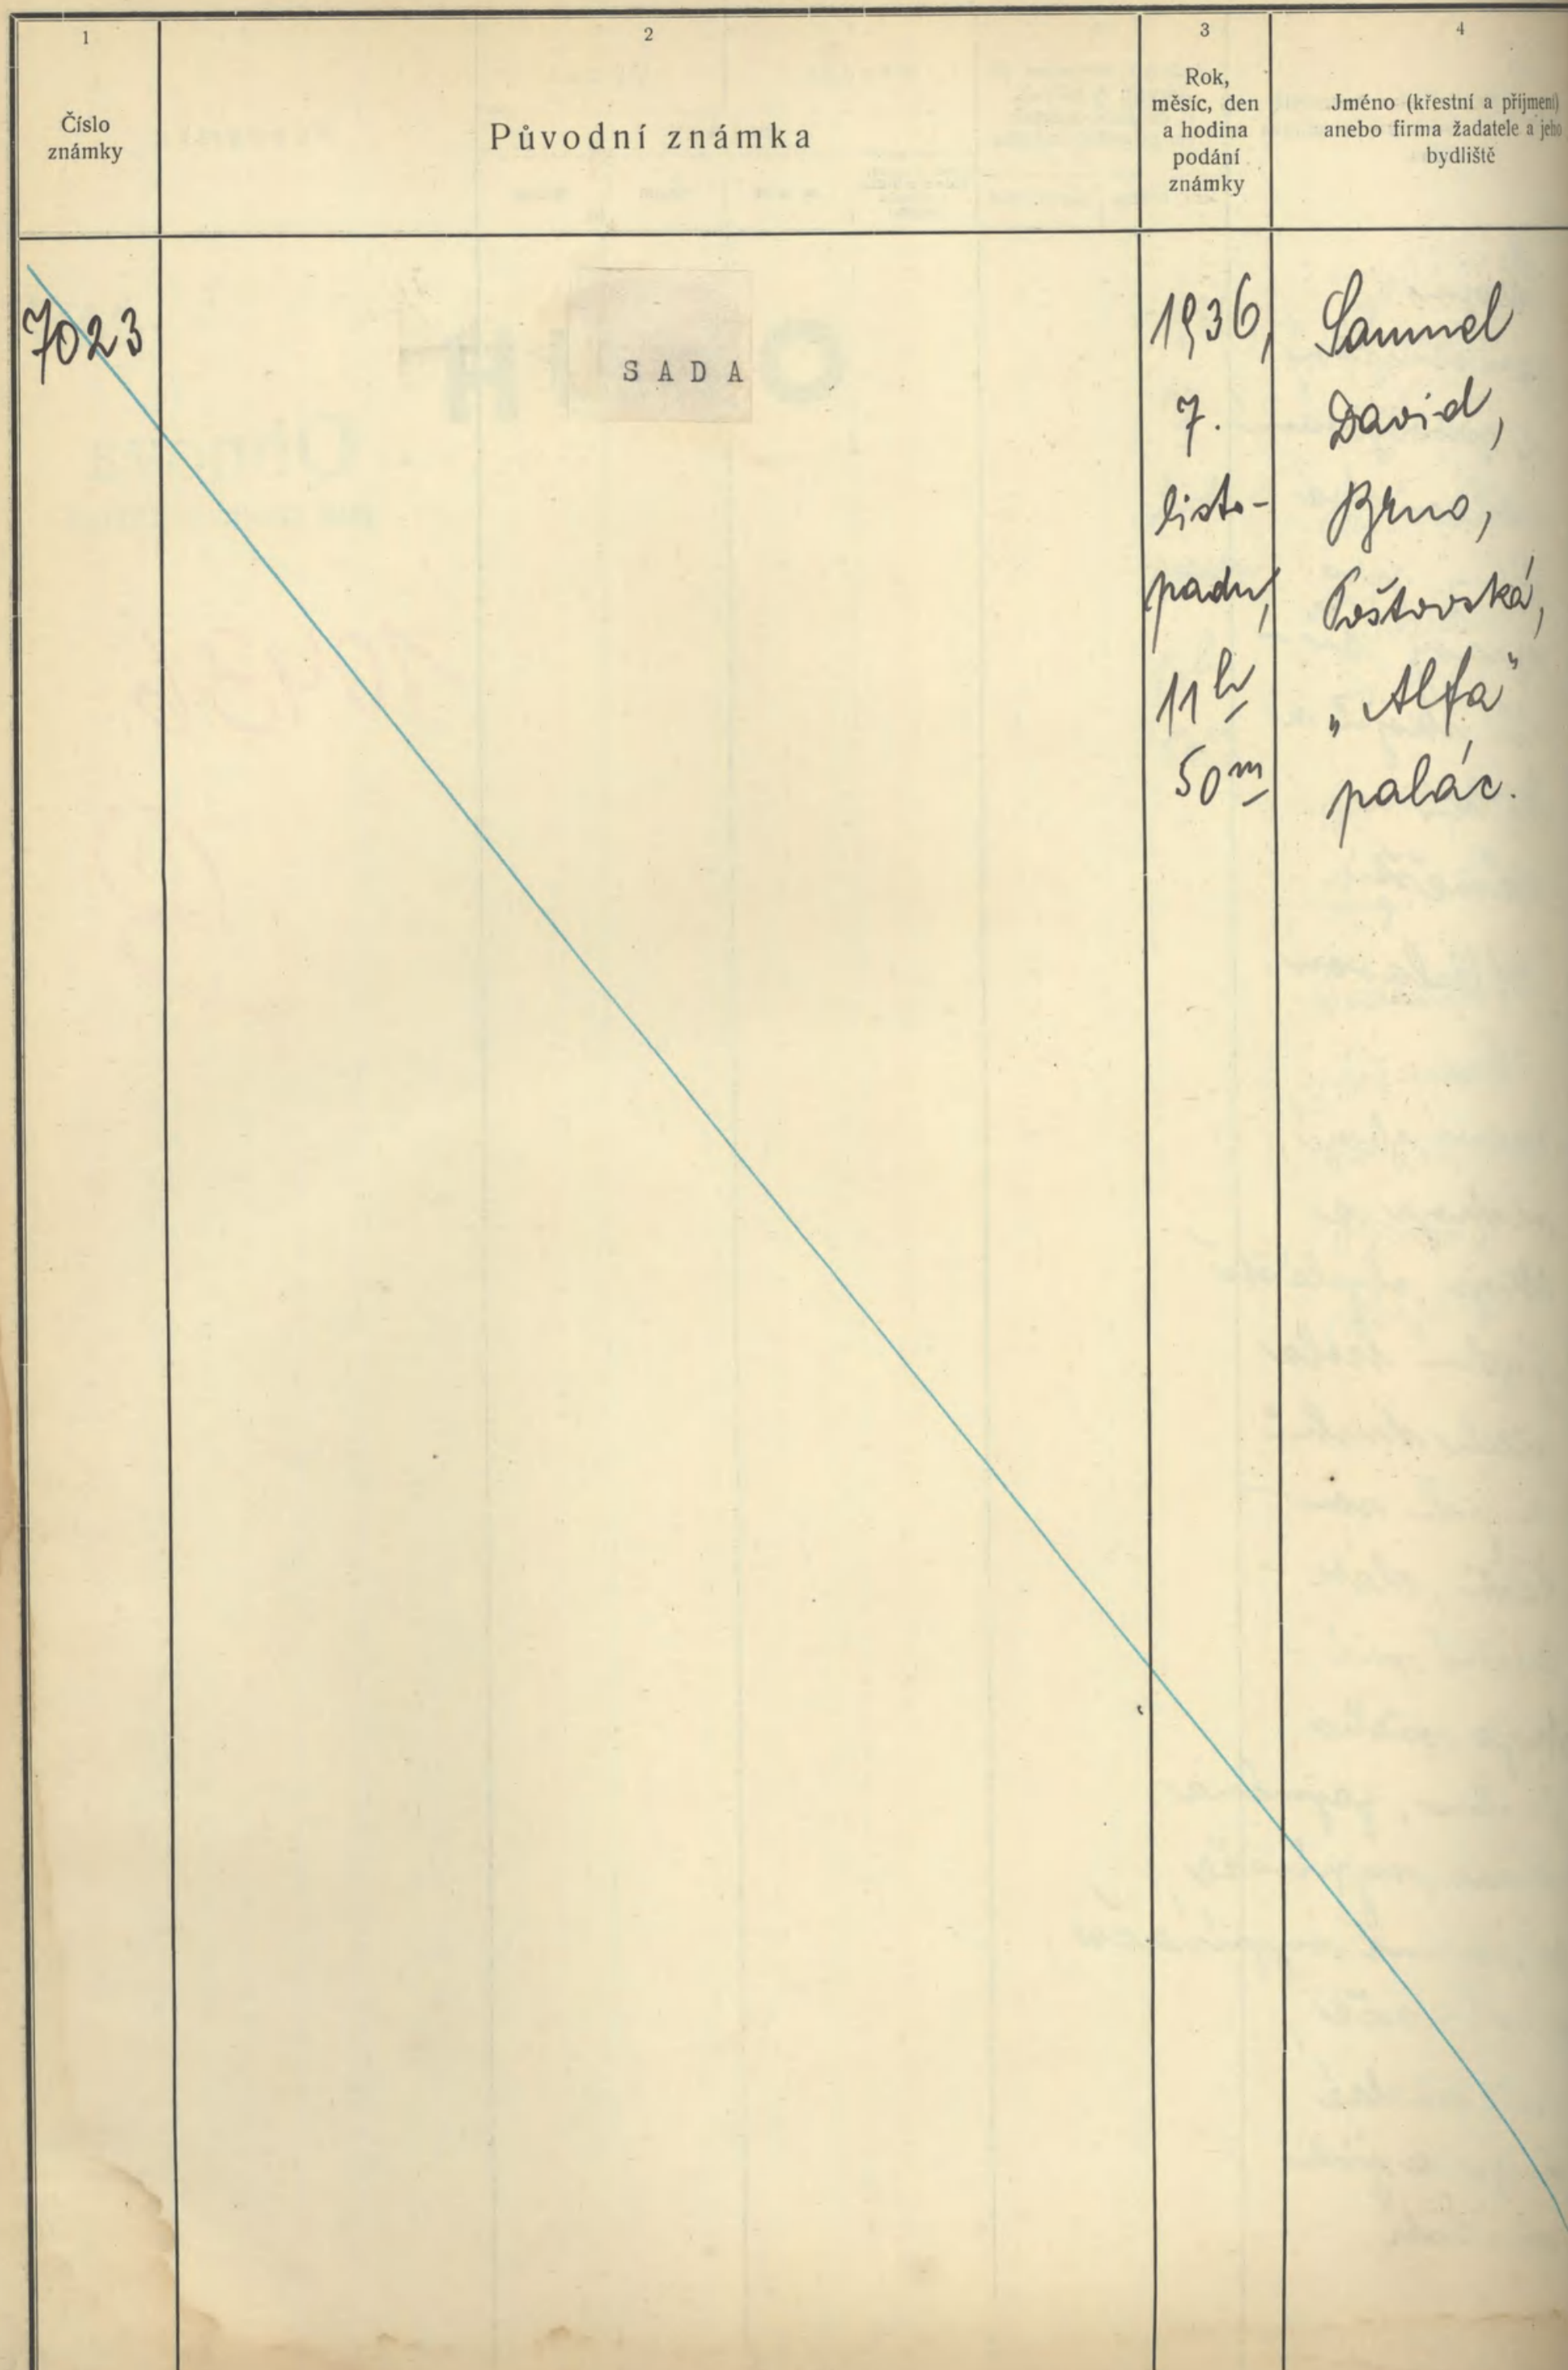 1
Číslo
známky
2
Původní známka
3
Rok,
měsíc, den
a hodina
podání
známky
4
Jméno (křestní a příjmení)
anebo firma žadatele a jeho
bydliště
7023
SADA
1936,
7.
listo-
padu,
11h
50m
Samuel
David,
Brno,
Poštovská,
„Alfa"
palác.